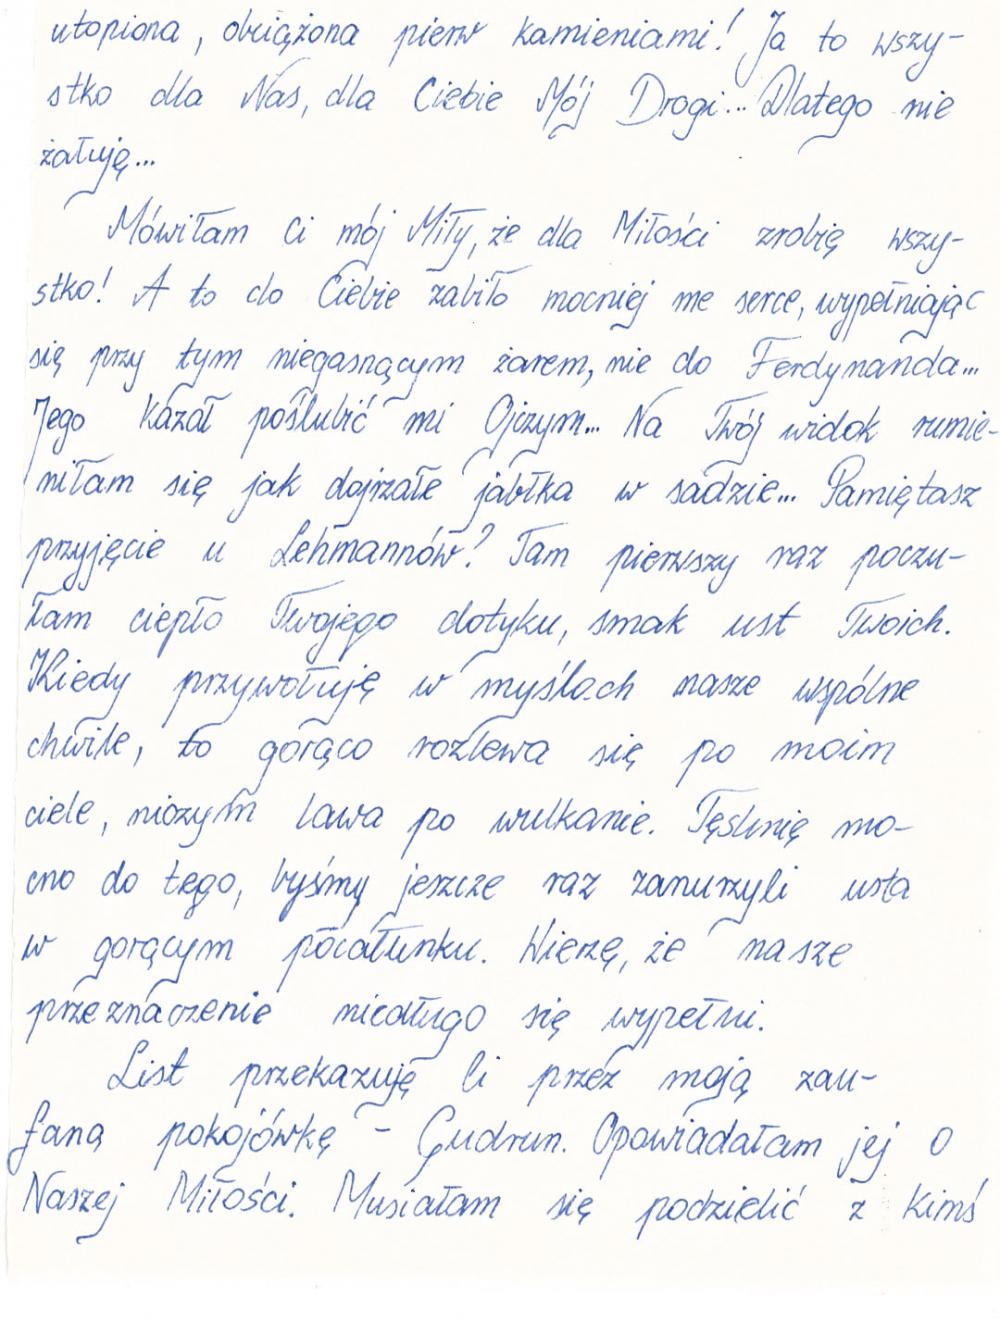 utopiona, obciążona pierw kamieniami! Ja to wszy-
stko dla Nas, dla Ciebie Mój Drogi... Dlatego nie
żałuję...
Mówiłam Ci mój Miły, że dla Miłości zrobię wszy-
stko! A to do Ciebie zabiło mocniej me serce, wypełniając
się przy tym niegasnącym żarem, nie do Ferdynanda...
Jego kazał poślubić mi Ojczym... Na Twój widok rumie-
niłam się jak dojrzałe jabłka w sadzie... Pamiętasz
przyjęcie u Lehmannów? Tam pierwszy raz poczu-
łam ciepło Twojego dotyku, smak ust Twoich.
Kiedy przywołuję w myślach nasze wspólne
chwile, to gorąco rozlewa się po moim
ciele, niczym lawa po wulkanie. Tęsknię mo-
cno do tego, byśmy jeszcze raz zanurzyli usta
w gorącym pocałunku. Wierzę, że nasze
przeznaczenie niedługo się wypełni.
List przekazuję Ci przez moją zau-
faną pokojówkę - Gudrun. Opowiadałam jej o
Naszej Miłości. Musiałam się podzielić z kimś